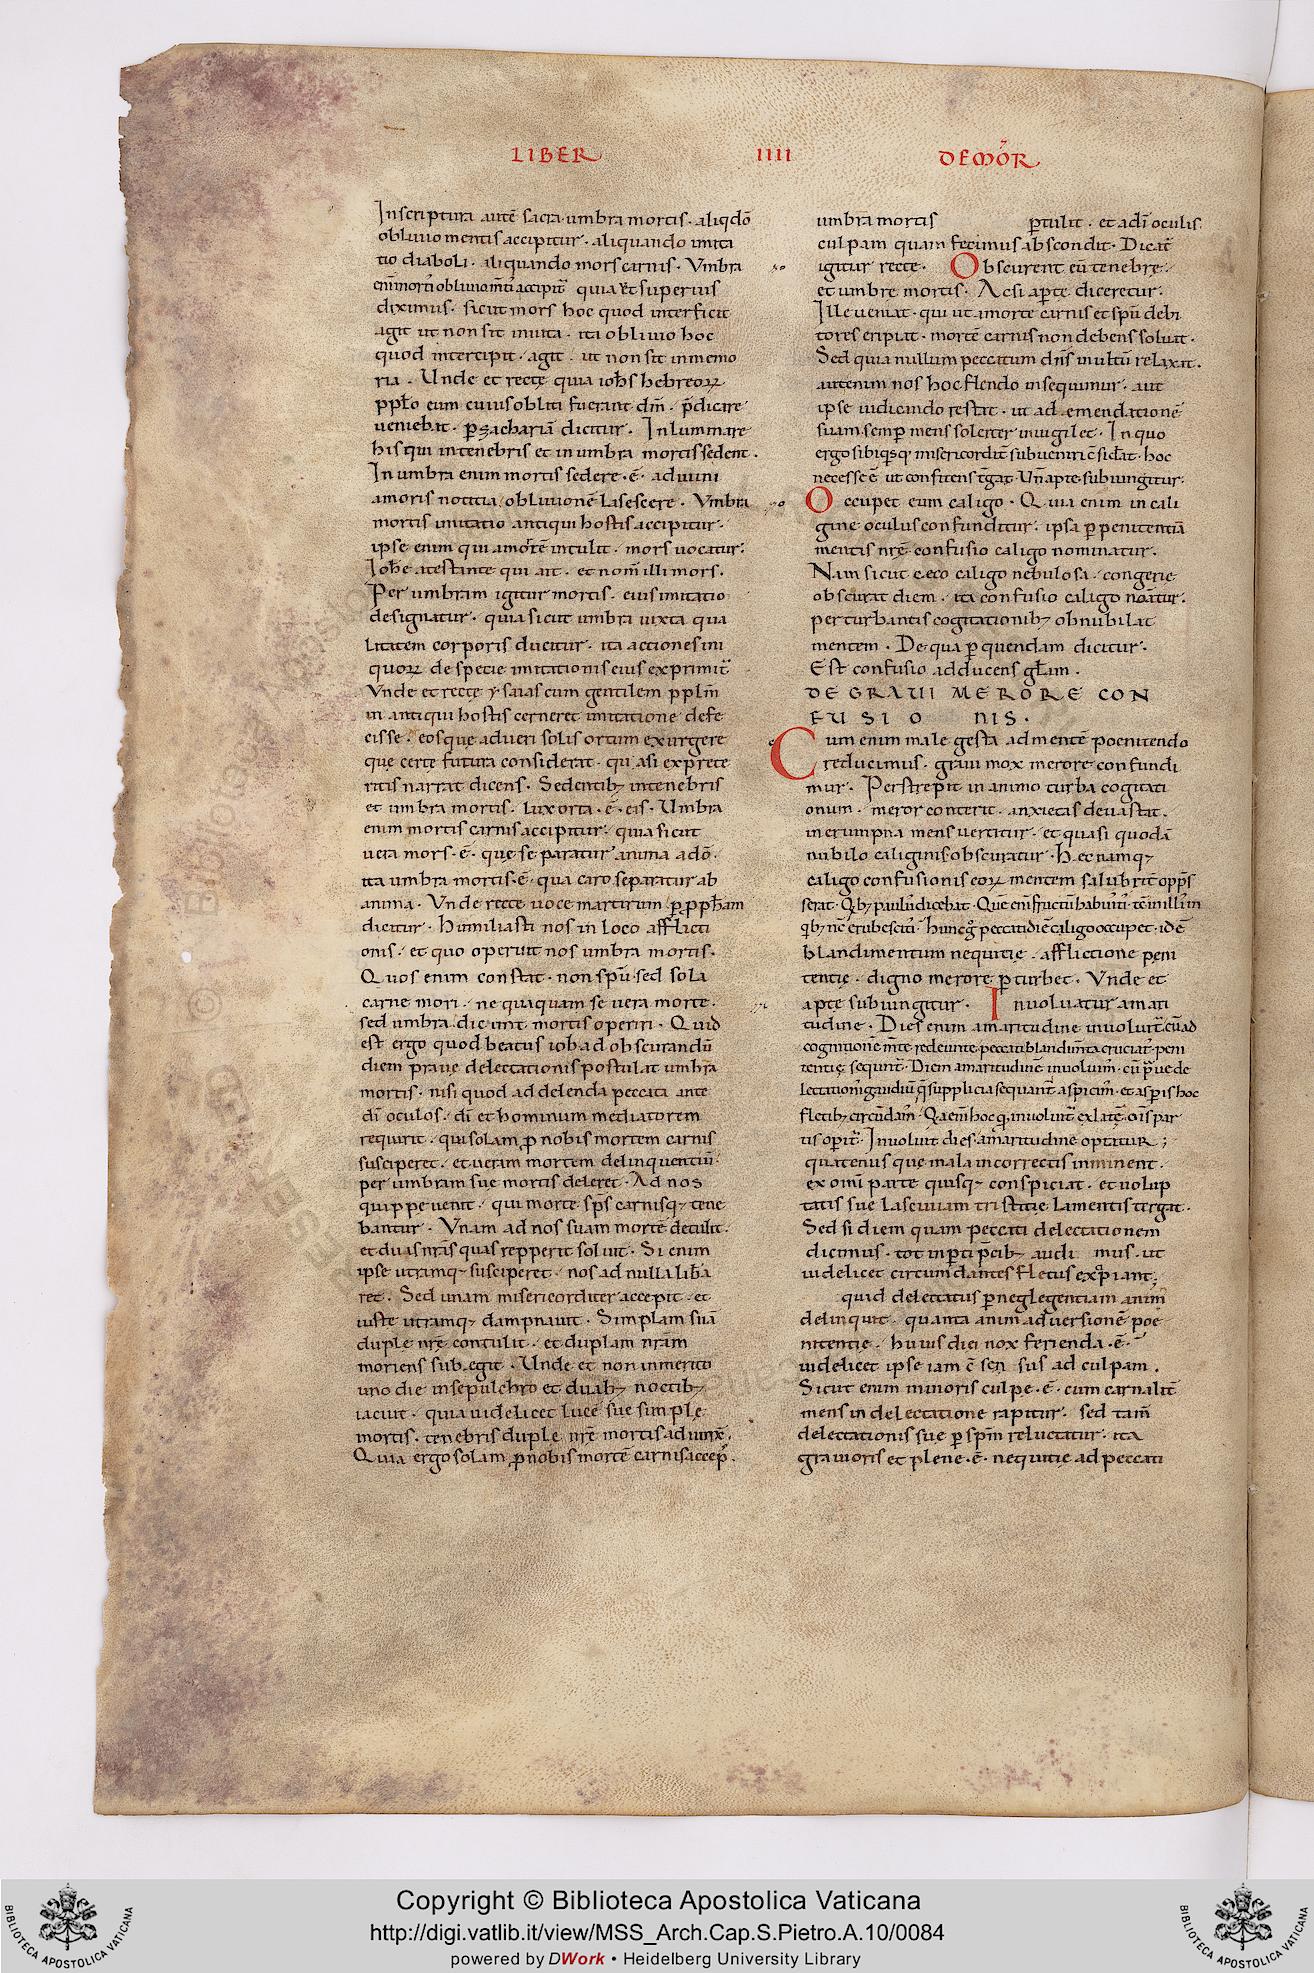 LIBER IIII DE MOR̄
Inscriptura autē sacra umbra mortis · aliqdō
obliuio mentis accipitur · aliquando imita
tio diaboli · aliquando mors carnis · Vmbra
enī morti᷒ obliuio mti᷒ accipit᷒ quia ut superius
diximus · sicut mors hoc quod interficit
agit ut non sit in uita · ita obliuio hoc
quod intercipit · agit · ut non sit in memo
ria · Unde et recte quia ioħs hebreoꝝ
ppło eum cuius obliti fuerant dm̄ · p̄dicare
ueniebat · ꝑ zachariā dicitur · Inluminare
his qui in tenebris et in umbra mortis sedent ·
In umbra enim mortis sedere · ē · a diuini
amoris notitia, obliuionē lasescere · Vmbra
mortis imitatio antiqui hostis accipitur ·
ipse enim qui amortē intulit · mors uocatur ·
Ioħe atestante qui ait · et nom̄ illi mors ·
Per umbram igitur mortis · eius imitatio
designatur · quia sicut umbra iuxta qua
litatem corporis ducitur · ita actiones ini
quoꝝ de specie imitationis eius exprimit᷒
Vnde et recte ysaias cum gentilem pplm̄
in antiqui hostis cerneret imitatione defe
cisse · eosque ad ueri solis ortum exurgere
que certe futura considerat · quasi ex prete
ritis narrat dicens · Sedentibȝ in tenebris
et umbra mortis · lux orta · ē · eis · Umbra
enim mortis carnis accipitur · quia sicut
uera mors · ē · que separatur anima a dō ·
ita umbra mortis · ē · qua caro separatur ab
anima · Vnde recte uoce martirum ꝑ ꝓpħam
dicitur · Humiliasti nos in loco afflicti
onis · et quo operuit nos umbra mortis ·
Quos enim constat · non spū sed sola
carne mori · ne quaquam se uera morte ·
sed umbra dicunt mortis operiri · Quid
est ergo quod beatus iob ad obscurandū
diem praue delectationis postulat umbrā
mortis · nisi quod ad delenda peccata ante
dī oculos · dī et hominum mediatorem
requirit · qui solam ꝓ nobis mortem carnis
susciperet · et ueram mortem delinquentiū ·
per umbram sue mortis deleret · Ad nos
quippe uenit · qui morte sps̄ carnisqȝ tene
bantur · Vnam ad nos suam mortē detulit ·
et duas nrās quas repperit soluit · Si enim
ipse utramqȝ susciperet · nos ad nulla libā
ret · Sed unam misericorditer accepit · et
iuste utramqȝ dampnauit · Simplam suā
duple nrē contulit · et duplam nrām
moriens subegit · Unde et non inmerito
uno die in sepulchro et duabȝ noctibȝ
iacuit · quia uidelicet lucē sue simple
mortis · tenebris duple nrē mortis adiunx̄ ·
Quia ergo solam ꝓ nobis mortē carnis accep᷒ ·
umbra mortis ꝑtulit · et a dī oculis
culpam quam fecimus abscondit · Dicat᷒
igitur recte · Obscurent eū tenebre ·
et umbre mortis · Ac si aꝑte diceretur ·
Ille ueniat · qui ut a morte carnis et spū debi
tores eripiat · mortē carnis non debens soluat ·
Sed quia nullum peccatum dn̄s inultū relaxat ·
aut enim nos hoc flendo insequimur · aut
ipse iudicando restat · ut ad emendationē
suam semꝑ mens solerter inuigilet · In quo
ergo sibi qusqȝ misericordit᷒ subueniri c̄sidat · hoc
necesse ē ut confitens t̄gat · Un̄ apte subiungitur ·
Occupet eum caligo · Quia enim in cali
gine oculus confunditur · ipsa ꝑ penitentiā
mentis nrē confusio caligo nominatur ·
Nam sicut ceco caligo nebulosa congerie
obscurat diem · ita confusio caligo noātur ·
perturbantis cogitationibȝ obnubilat
mentem · De qua ꝑ quendam dicitur ·
Est confusio adducens głam ·
DE GRAUI MERORE CON
FUSIONIS ·
Cum enim male gesta ad mentē poenitendo
reducimus · graui mox merore confundi
mur · Perstrepit in animo turba cogitati
onum · meror conterit · anxietas deuastat ·
in erumpna mens uertitur · et quasi quodā
nubilo caliginis obscuratur · Hec namqȝ
caligo confusionis eoꝝ mentem salubrit᷒ opp̄s
serat · Qbȝ paulu᷒ dicebat · Quē enī fructū habuiti᷒ tē in illi᷒ in
qbȝ nc̄ erubesciti᷒ · Hunc g̊ peccati diē caligo occupet · id ē
blandimentum nequitie · afflictione peni
tentie · digno merore ꝑturbet · Vnde et
apte subiungitur · Inuoluatur amari
tudine · Dies enim amaritudine inuoluit᷒ · cū ad
cognitionē mte᷒ redeunte · peccati blandimta᷒ cruciat᷒ peni
tentie sequnt᷒ · Diem amaritudinē inuoluim᷒ · cū praue de
lectationi᷒ gaudiū q̄ supplicia sequant᷒ aspicim᷒ · et asꝑis hoc
fletibȝ circūdam᷒ · Q̄a enī hoc q̊ inuoluit᷒ ex latē · om̄i par
tis oꝑit᷒ · Inuolut dies amaritudine optitur ;
quatenus que mala incorrectis imminent ·
ex omi parte quisqȝ conspiciat · et uolup
tatis sue lasciuiam tristitie lamentis tergat ·
Sed si diem quam peccati delectationem
dicimus · tot in ꝑti p̄cibȝ audimus · ut
uidelicet circumdantes fletus expiant ·
quid delectatus ꝑ neglegentiam anim᷒
delinquit · quanta animaduersionē poe
nitentie · huius diei nox ferienda · ē ·
uidelicet ipse iam c̄sensus ad culpam ·
Sicut enim minoris culpe · ē · cum carnalit᷒
mens in delectatione rapitur · sed tam̄
delectationis sue ꝑ spm̄ reluctatur · ita
grauioris et plene · ē · nequitie ad peccati
Copyright © Biblioteca Apostolica Vaticana
http://digi.vatlib.it/view/MSS_Arch.Cap.S.Pietro.A.10/0084
powered by DWork • Heidelberg University Library
BIBLIOTECA APOSTOLICA VATICANA
BIBLIOTECA APOSTOLICA VATICANA